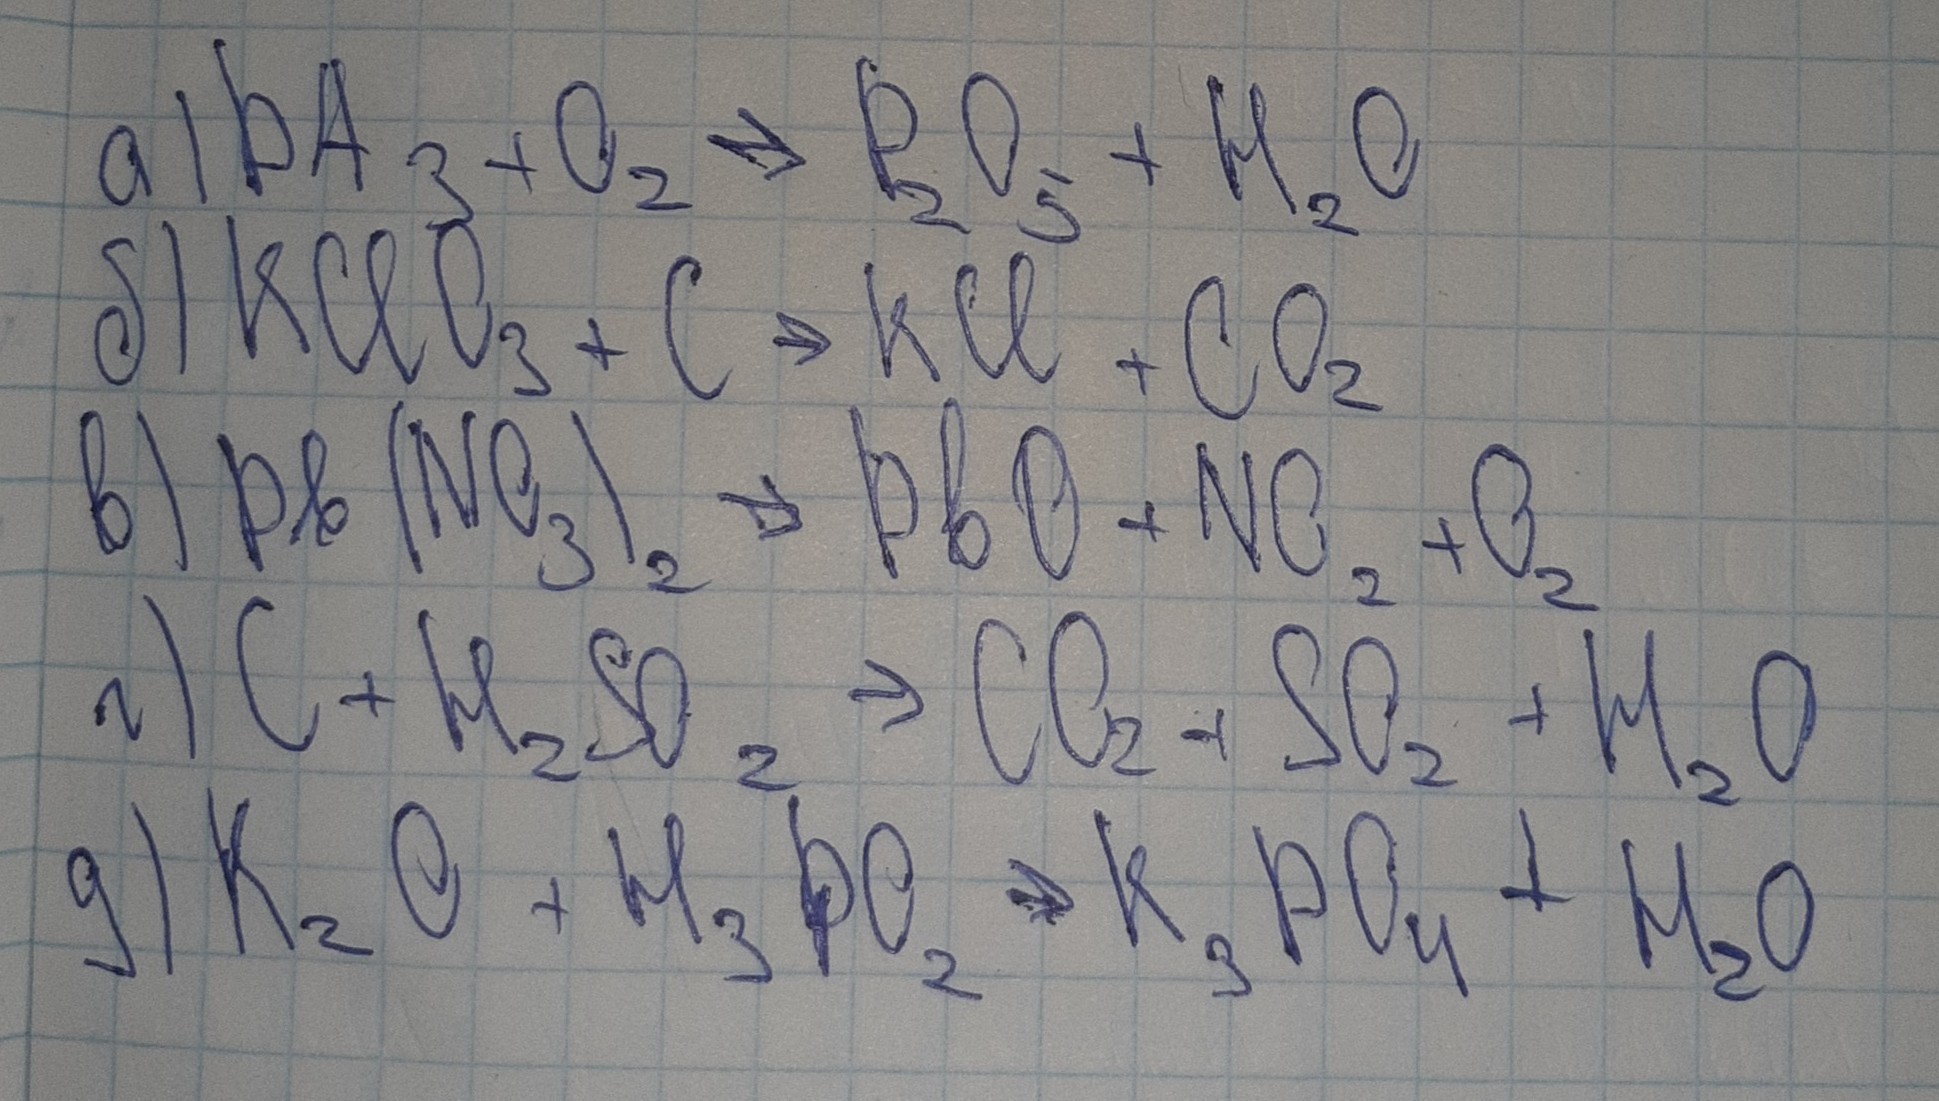 а) PH₃ + O₂ → P₂O₅ + H₂O
б) KClO₃ + C → KCl + CO₂
в) Pb(NO₃)₂ → PbO + NO₂ + O₂
г) C + H₂SO₂ → CO₂ + SO₂ + H₂O
д) K₂O + H₃PO₂ → K₃PO₄ + H₂O